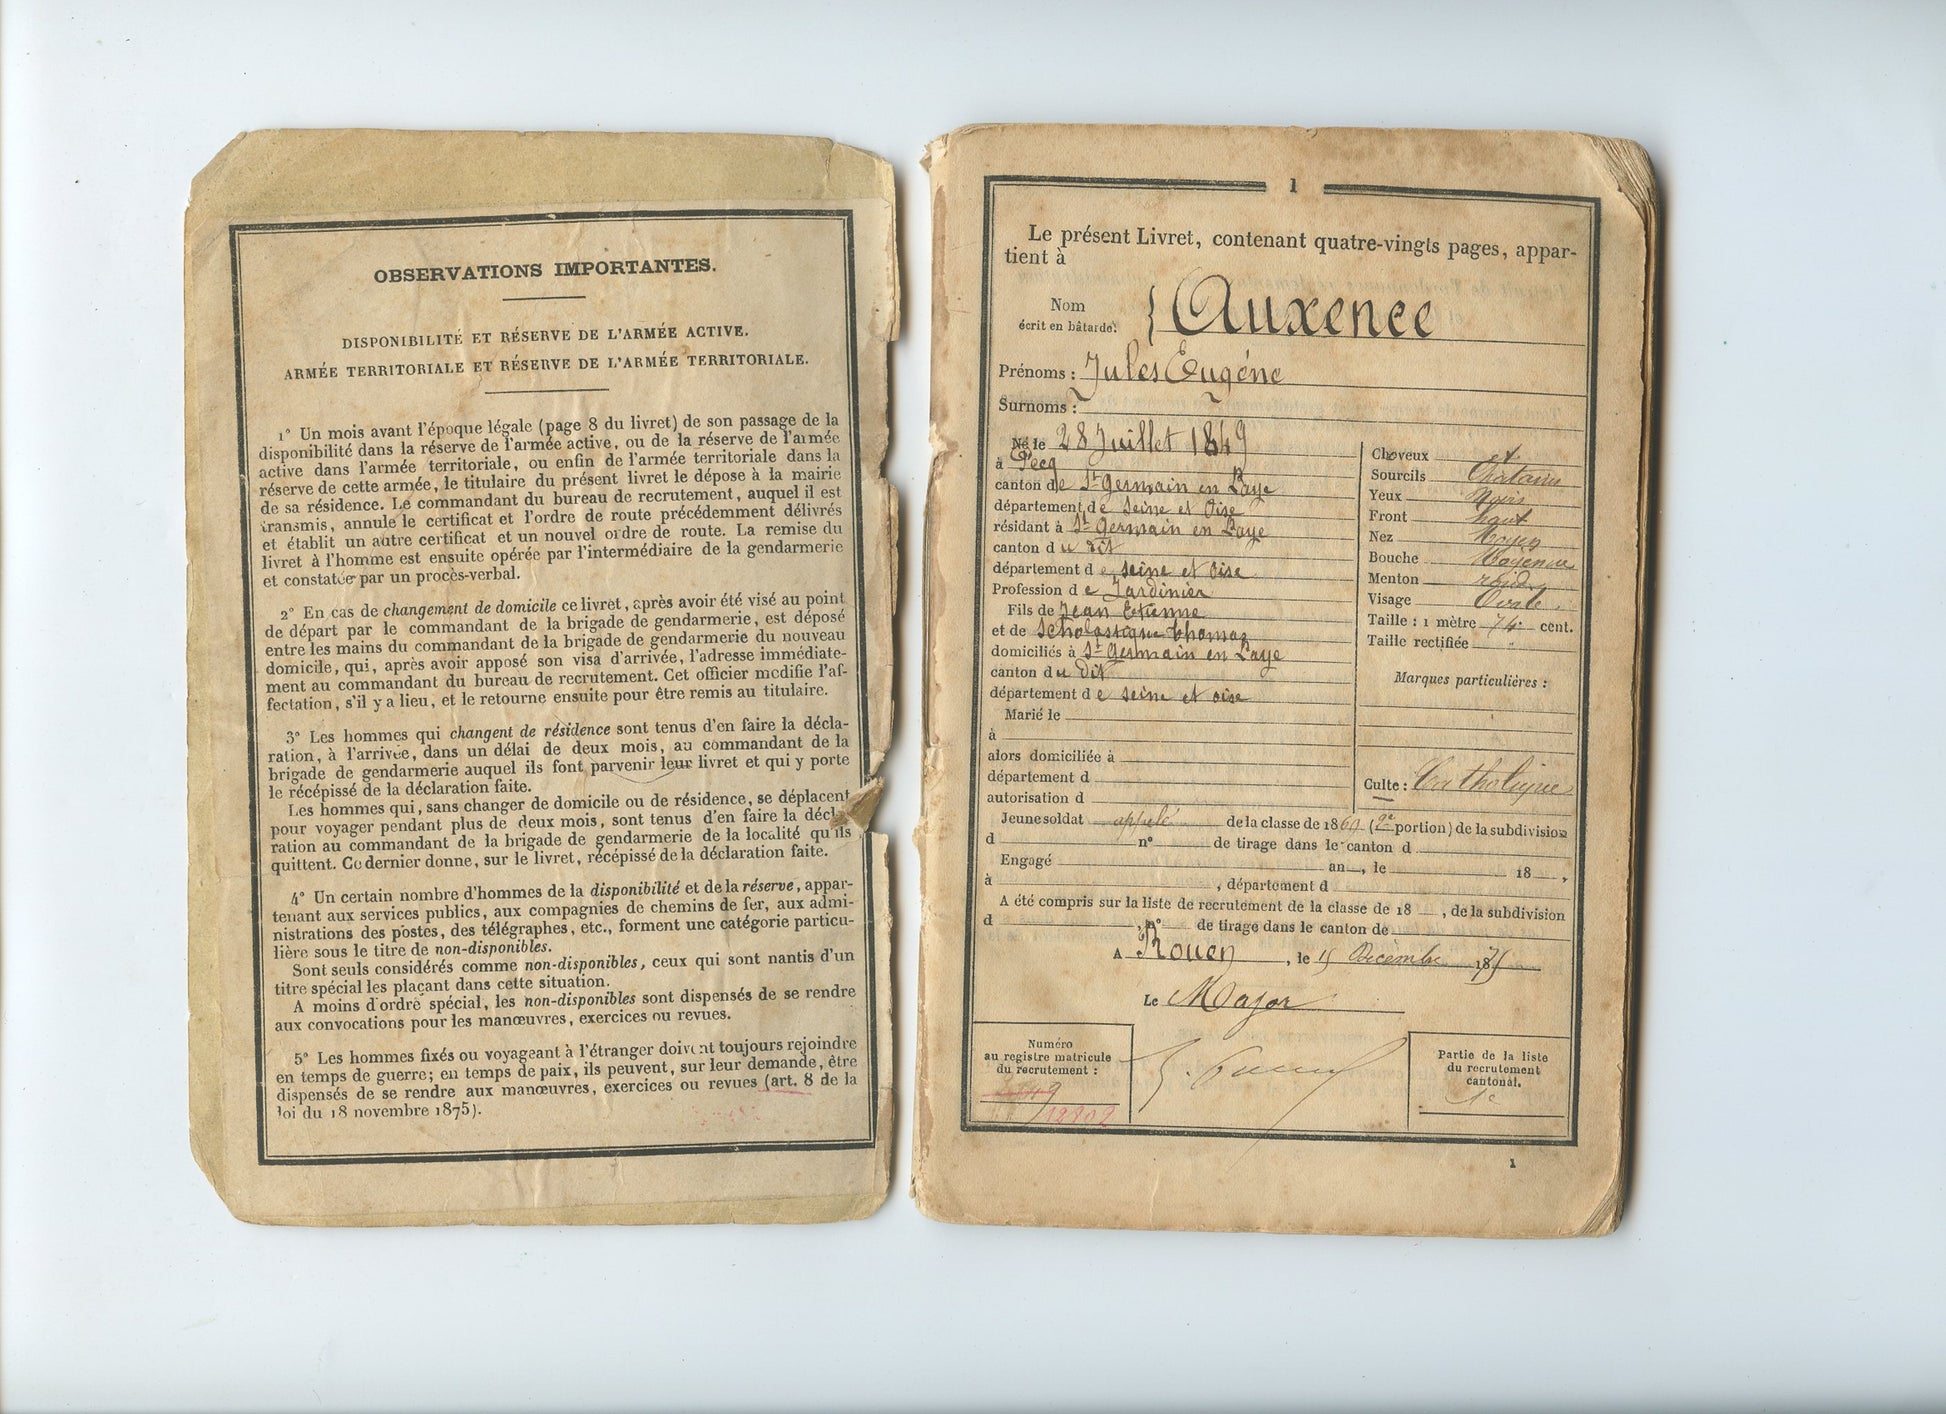 OBSERVATIONS IMPORTANTES.
DISPONIBILITÉ ET RÉSERVE DE L'ARMÉE ACTIVE.
ARMÉE TERRITORIALE ET RÉSERVE DE L'ARMÉE TERRITORIALE.
1° Un mois avant l'époque légale (page 8 du livret) de son passage de la
disponibilité dans la réserve de l'armée active, ou de la réserve de l'armée
active dans l'armée territoriale, ou enfin de l'armée territoriale dans la
réserve de cette armée, le titulaire du présent livret le dépose à la mairie
de sa résidence. Le commandant du bureau de recrutement, auquel il est
transmis, annule le certificat et l'ordre de route précédemment délivrés
et établit un autre certificat et un nouvel ordre de route. La remise du
livret à l'homme est ensuite opérée par l'intermédiaire de la gendarmerie
et constatée par un procès-verbal.
2° En cas de changement de domicile ce livret, après avoir été visé au point
de départ par le commandant de la brigade de gendarmerie, est déposé
entre les mains du commandant de la brigade de gendarmerie du nouveau
domicile, qui, après avoir apposé son visa d'arrivée, l'adresse immédiate-
ment au commandant du bureau de recrutement. Cet officier modifie l'af-
fectation, s'il y a lieu, et le retourne ensuite pour être remis au titulaire.
3° Les hommes qui changent de résidence sont tenus d'en faire la décla-
ration, à l'arrivée, dans un délai de deux mois, au commandant de la
brigade de gendarmerie auquel ils font parvenir leur livret et qui y porte
le récépissé de la déclaration faite.
Les hommes qui, sans changer de domicile ou de résidence, se déplacent
pour voyager pendant plus de deux mois, sont tenus d'en faire la décla-
ration au commandant de la brigade de gendarmerie de la localité qu'ils
quittent. Ce dernier donne, sur le livret, récépissé de la déclaration faite.
4° Un certain nombre d'hommes de la disponibilité et de la réserve, appar-
tenant aux services publics, aux compagnies de chemins de fer, aux admi-
nistrations des postes, des télégraphes, etc., forment une catégorie particu-
lière sous le titre de non-disponibles.
Sont seuls considérés comme non-disponibles, ceux qui sont nantis d'un
titre spécial les plaçant dans cette situation.
A moins d'ordre spécial, les non-disponibles sont dispensés de se rendre
aux convocations pour les manœuvres, exercices ou revues.
5° Les hommes fixés ou voyageant à l'étranger doivent toujours rejoindre
en temps de guerre; en temps de paix, ils peuvent, sur leur demande, être
dispensés de se rendre aux manœuvres, exercices ou revues (art. 8 de la
loi du 18 novembre 1875).
1
Le présent Livret, contenant quatre-vingts pages, appar-
tient à
Nom
écrit en bâtarde: Auxence
Prénoms : Jules Eugéne
Surnoms :
Né le 28 Juillet 1849
à Pecq
canton de St Germain en Laye
département de Seine et Oise
résidant à St Germain en Laye
canton du dit
département de Seine et Oise
Profession de Jardinier
Fils de Jean Etienne
et de Scholastique Thomas
domiciliés à St Germain en Laye
canton du dit
département de Seine et oise
Marié le
à
alors domiciliée à
département d
autorisation d
Cheveux et
Sourcils Chatains
Yeux Noirs
Front haut
Nez Moyen
Bouche Moyenne
Menton rond
Visage Ovale.
Taille : 1 mètre 74 cent.
Taille rectifiée
Marques particulières :
Culte : Catholique
Jeune soldat appelé de la classe de 1869 (2e portion) de la subdivision
d n° de tirage dans le canton d
Engagé an , le 18 ,
à , département d
A été compris sur la liste de recrutement de la classe de 18 , de la subdivision
d , n° de tirage dans le canton de
A Rouen, le 15 Décembre 1875
Le Major
Numéro
au registre matricule
du recrutement :
12802
Partie de la liste
du recrutement
cantonal.
1e
1